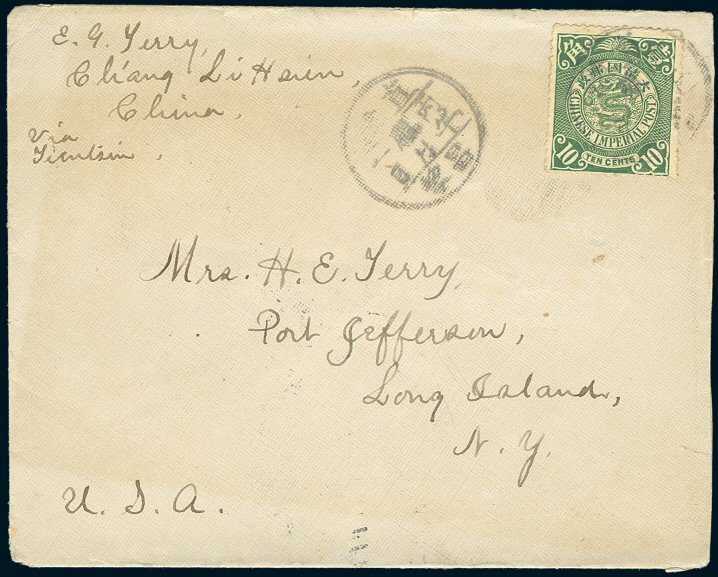 E. G. Terry,
Ch'ang Li Hsien,
China.
via
Tientsin.
角 壹
大清國郵政
CHINESE IMPERIAL POST
10 TEN CENTS 10
Mrs. H. E. Terry,
Port Jefferson,
Long Island,
N. Y.
U. S. A.